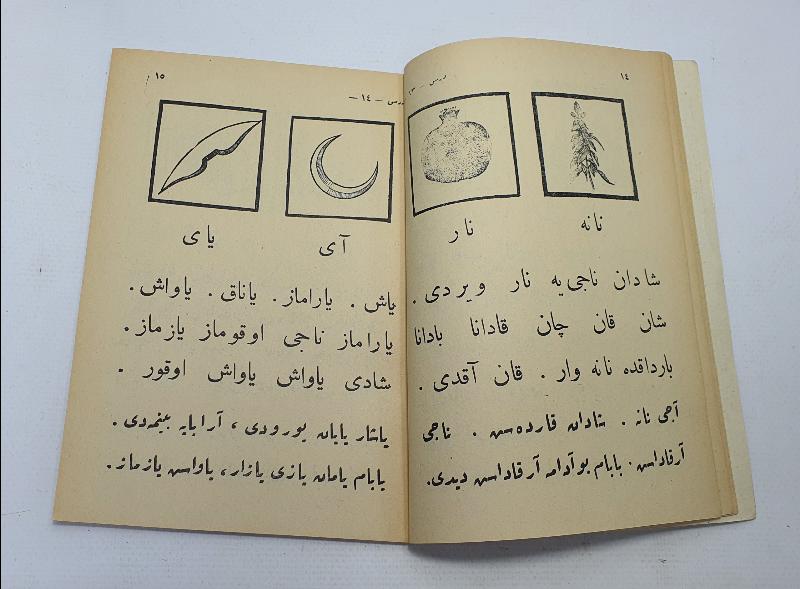 ١٤
درس – ١٣
نانه
نار
شادان ناجی‌یه نار ویردی.
شان قان چان قادانا بادانا
بارداقده نانه وار. قان آقدی.
آجی نانه. شادان قارده‌ش. ناجی
آرقاداش. بابام بو آدامه آرقاداش دیدی.
١٥
درس – ١٤ –
آی
یای
یاش. یاراماز. یاناق. یاواش.
یاراماز ناجی اوقوماز یازماز.
شادی یاواش یاواش اوقور.
یاشار یایان یورودی، آرابایه بینمه‌دی.
بابام یامان یازی یازار، یاواش یازماز.